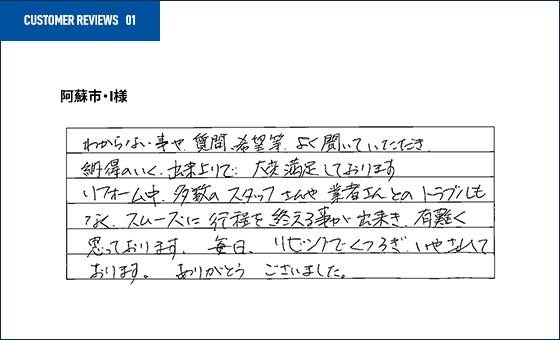 CUSTOMER REVIEWS 01
阿蘇市・I様
わからない事や、質問、希望等、よく聞いていただき、
納得のいく、出来上りで、大変満足しております
リフォーム中、多数のスタッフさんや業者さんとのトラブルも
なく、スムーズに行程を終える事が出来き、有難く
思っております、毎日、リビングでくつろぎ、いやされて
おります。ありがとうございました。